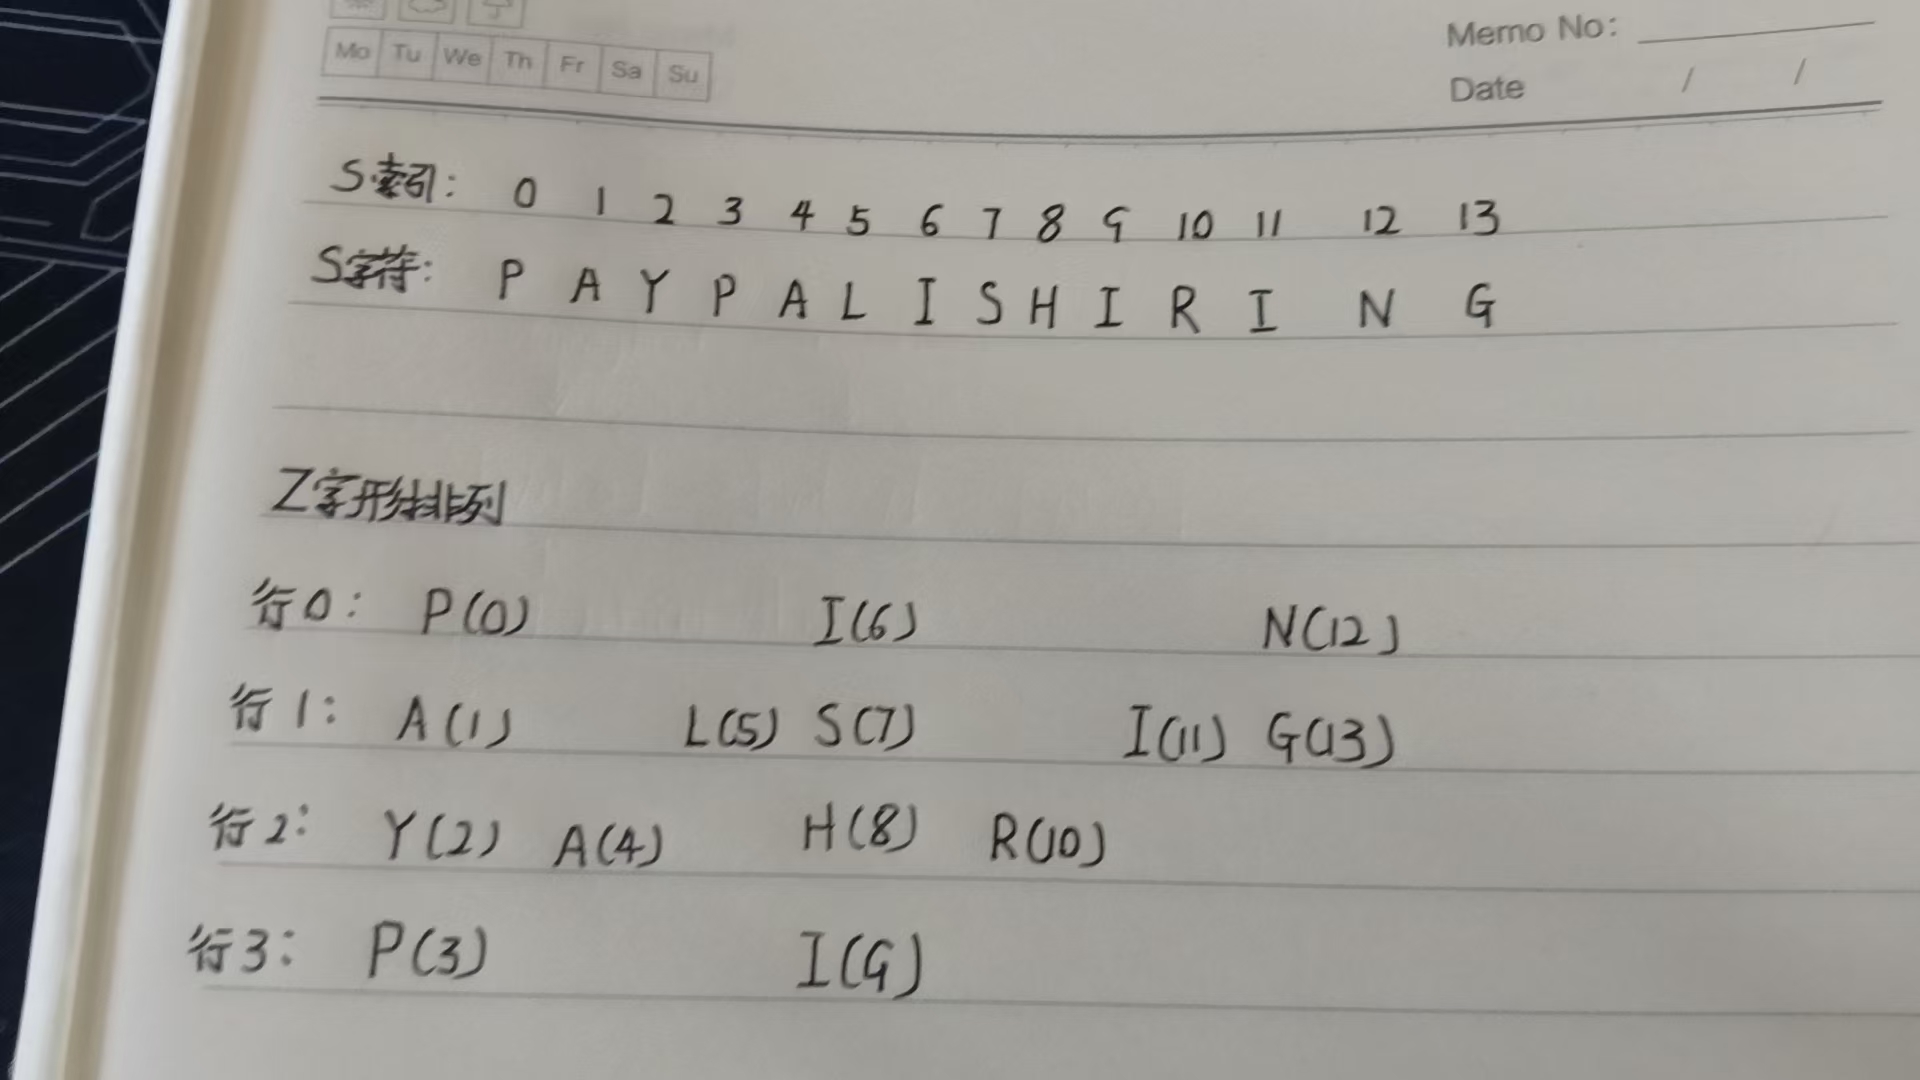 Mo Tu We Th Fr Sa Su
Memo No:
Date / /
S索引: 0 1 2 3 4 5 6 7 8 9 10 11 12 13
S字符: P A Y P A L I S H I R I N G
Z字形排列
行0: P(0) I(6) N(12)
行1: A(1) L(5) S(7) I(11) G(13)
行2: Y(2) A(4) H(8) R(10)
行3: P(3) I(9)